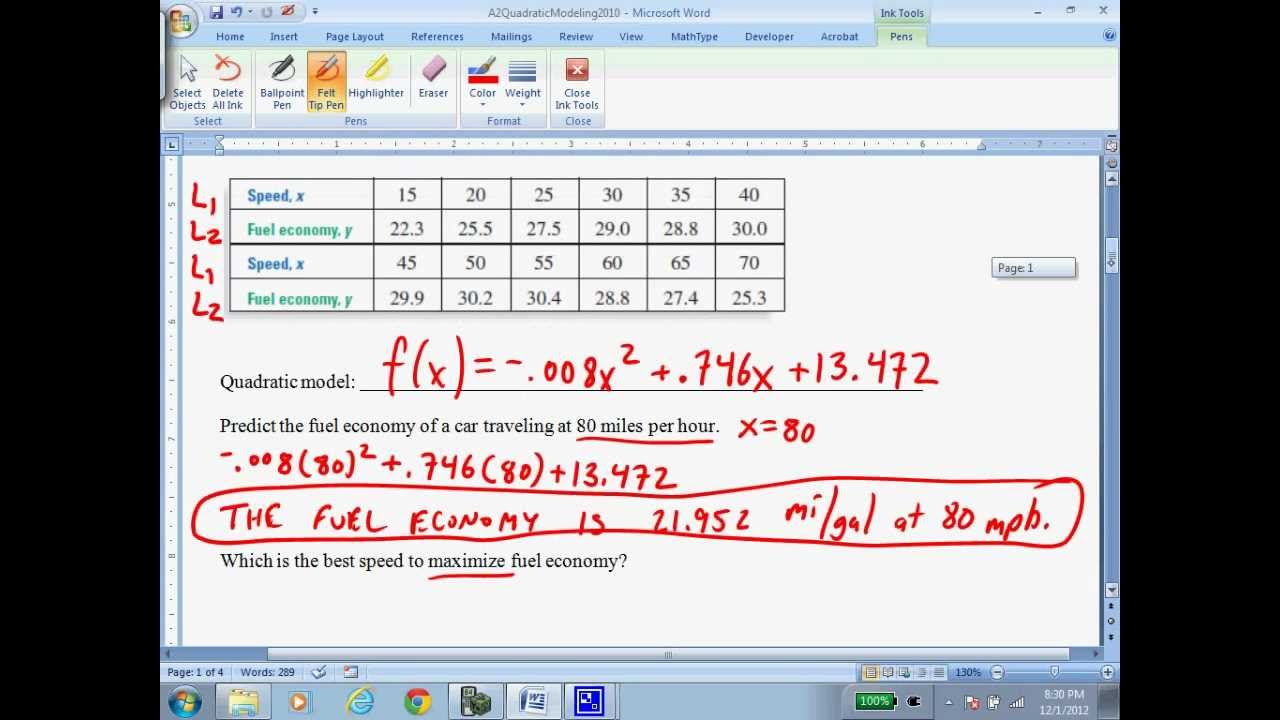 A2QuadraticModeling2010 - Microsoft Word
Ink Tools
Home Insert Page Layout References Mailings Review View MathType Developer Acrobat Pens
Select Objects Delete All Ink Ballpoint Pen Felt Tip Pen Highlighter Eraser Color Weight Close Ink Tools
Select Pens Format Close
L 1 2 3 4 5 6 7
L1 Speed, x 15 20 25 30 35 40
L2 Fuel economy, y 22.3 25.5 27.5 29.0 28.8 30.0
L1 Speed, x 45 50 55 60 65 70
L2 Fuel economy, y 29.9 30.2 30.4 28.8 27.4 25.3
Page: 1
5
6
7
8
Quadratic model: f(x) = -.008x² + .746x + 13.472
Predict the fuel economy of a car traveling at 80 miles per hour. x = 80
-.008(80)² + .746(80) + 13.472
THE FUEL ECONOMY IS 21.952 mi/gal at 80 mph.
Which is the best speed to maximize fuel economy?
Page: 1 of 4 Words: 289 130%
100% 8:30 PM
12/1/2012